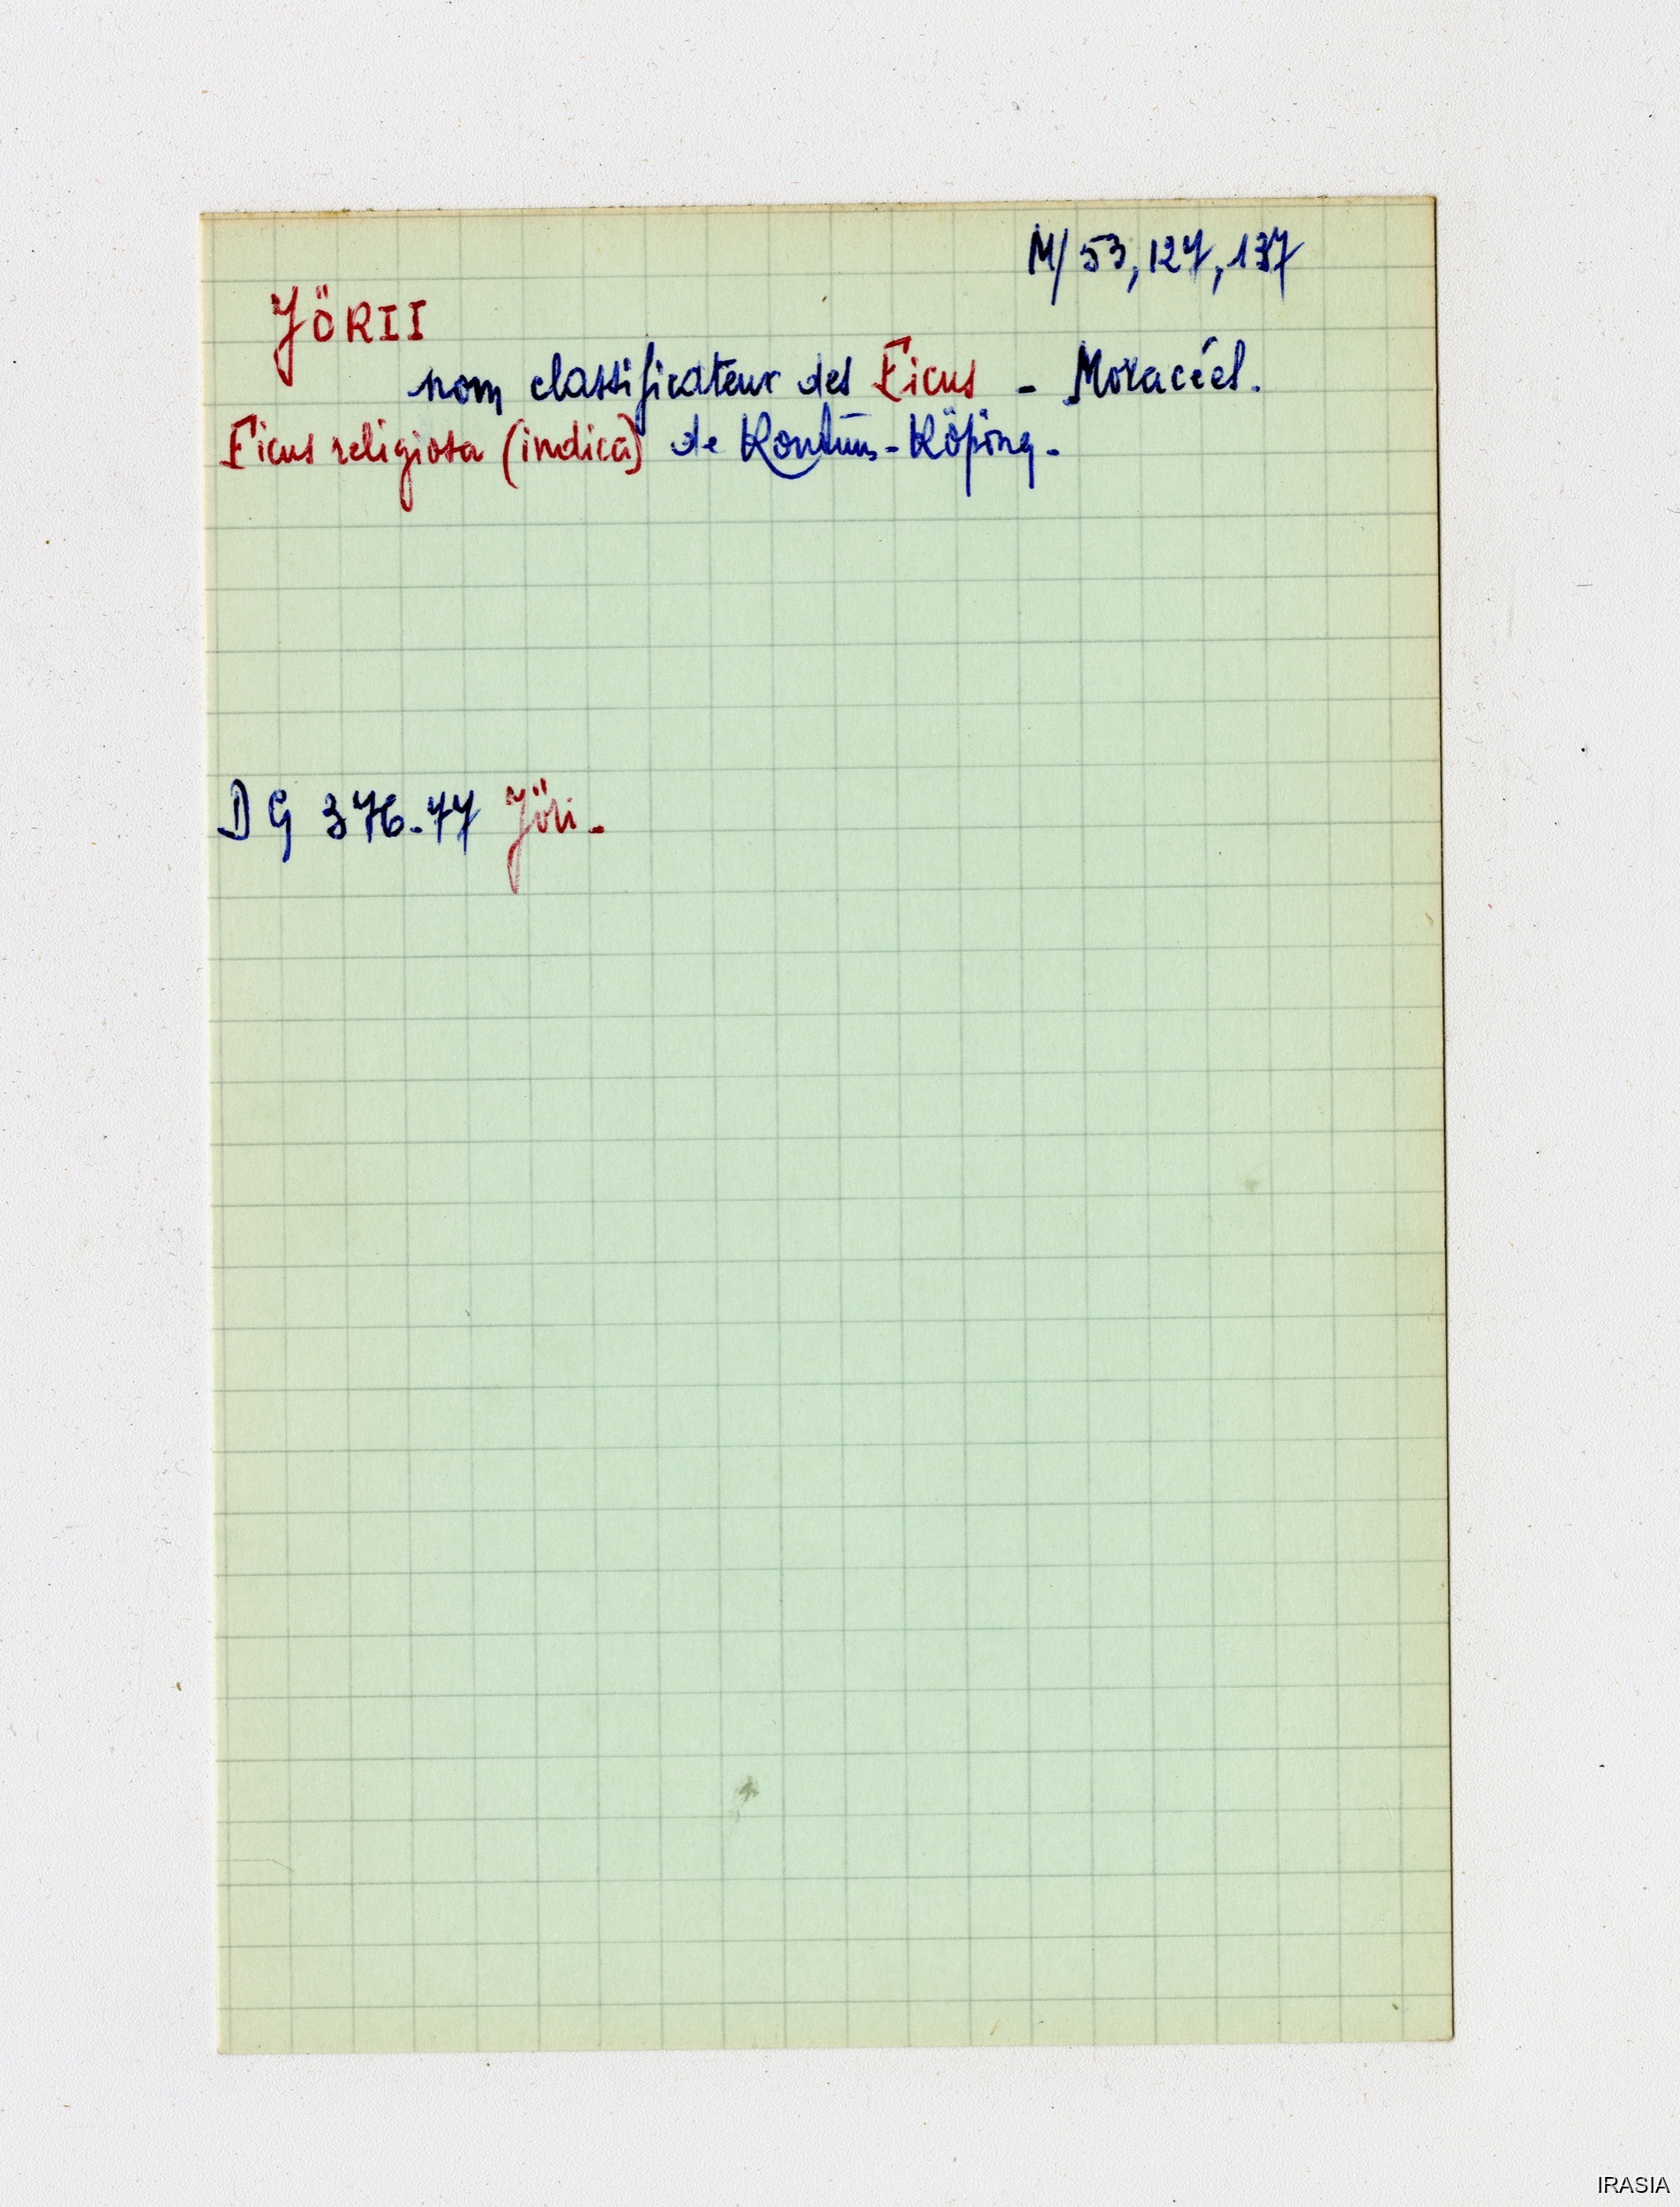 M/ 53, 127, 137
JÖRII
nom classificateur des Ficus - Moracées.
Ficus religiosa (indica) de Kontum-Köpöng-
DG 376-77 Jöri-
IRASIA